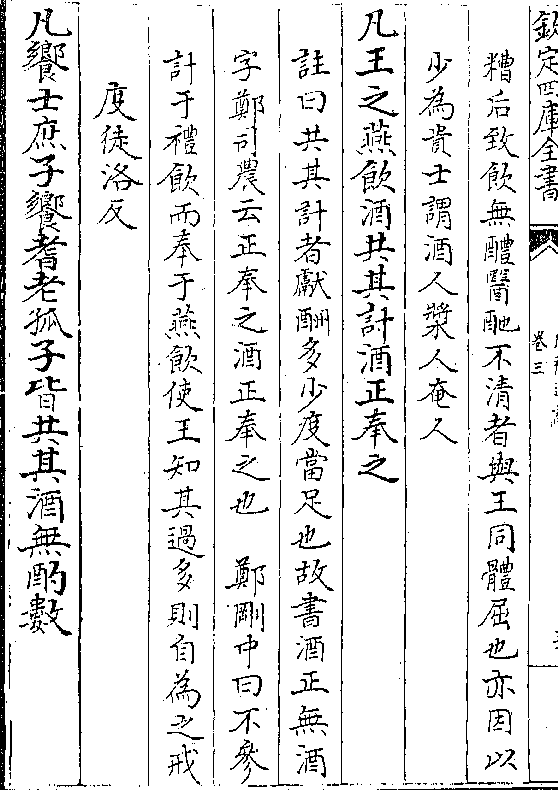 欽定四庫全書
卷三
糟后致飲無醴醫酏不清者與王同體屈也亦因以
少為貴士謂酒人漿人奄人
凡王之燕飲酒共其計酒正奉之
註曰共其計者獻酬多少度當足也故書酒正無酒
字鄭司農云正奉之酒正奉之也　鄭剛中曰不參
計于禮飲而奉于燕飲使王知其過多則自為之戒
度徒洛反
凡饗士庶子饗耆老孤子皆共其酒無酌數